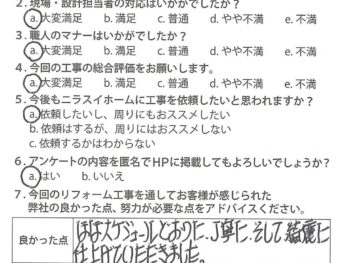 2. 現場・設計担当者の対応はいかがでしたか？
a.大変満足 b. 満足 c. 普通 d. やや不満 e. 不満
3. 職人のマナーはいかがでしたか？
a.大変満足 b. 満足 c. 普通 d. やや不満 e. 不満
4. 今回の工事の総合評価をお願いします。
a.大変満足 b. 満足 c. 普通 d. やや不満 e. 不満
5. 今後もニラスイホームに工事を依頼したいと思われますか？
a.依頼したいし、周りにもおススメしたい
b. 依頼はするが、周りにはおススメしない
c. 依頼するかはわからない
6. アンケートの内容を匿名でHPに掲載してもよろしいでしょうか？
a.はい b. いいえ
7. 今回のリフォーム工事を通してお客様が感じられた
弊社の良かった点、努力が必要な点をアドバイスください。
良かった点 ほぼスケジュールどおりに、丁寧に、そして綺麗に
仕上げていただきました。